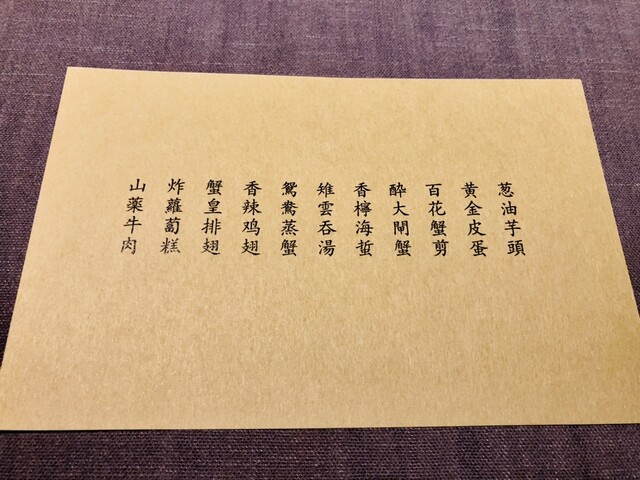 葱油芋頭
黄金皮蛋
百花蟹剪
酔大閘蟹
香檸海蜇
雉雲吞湯
鴛鴦蒸蟹
香辣鸡翅
蟹皇排翅
炸蘿蔔糕
山薬牛肉